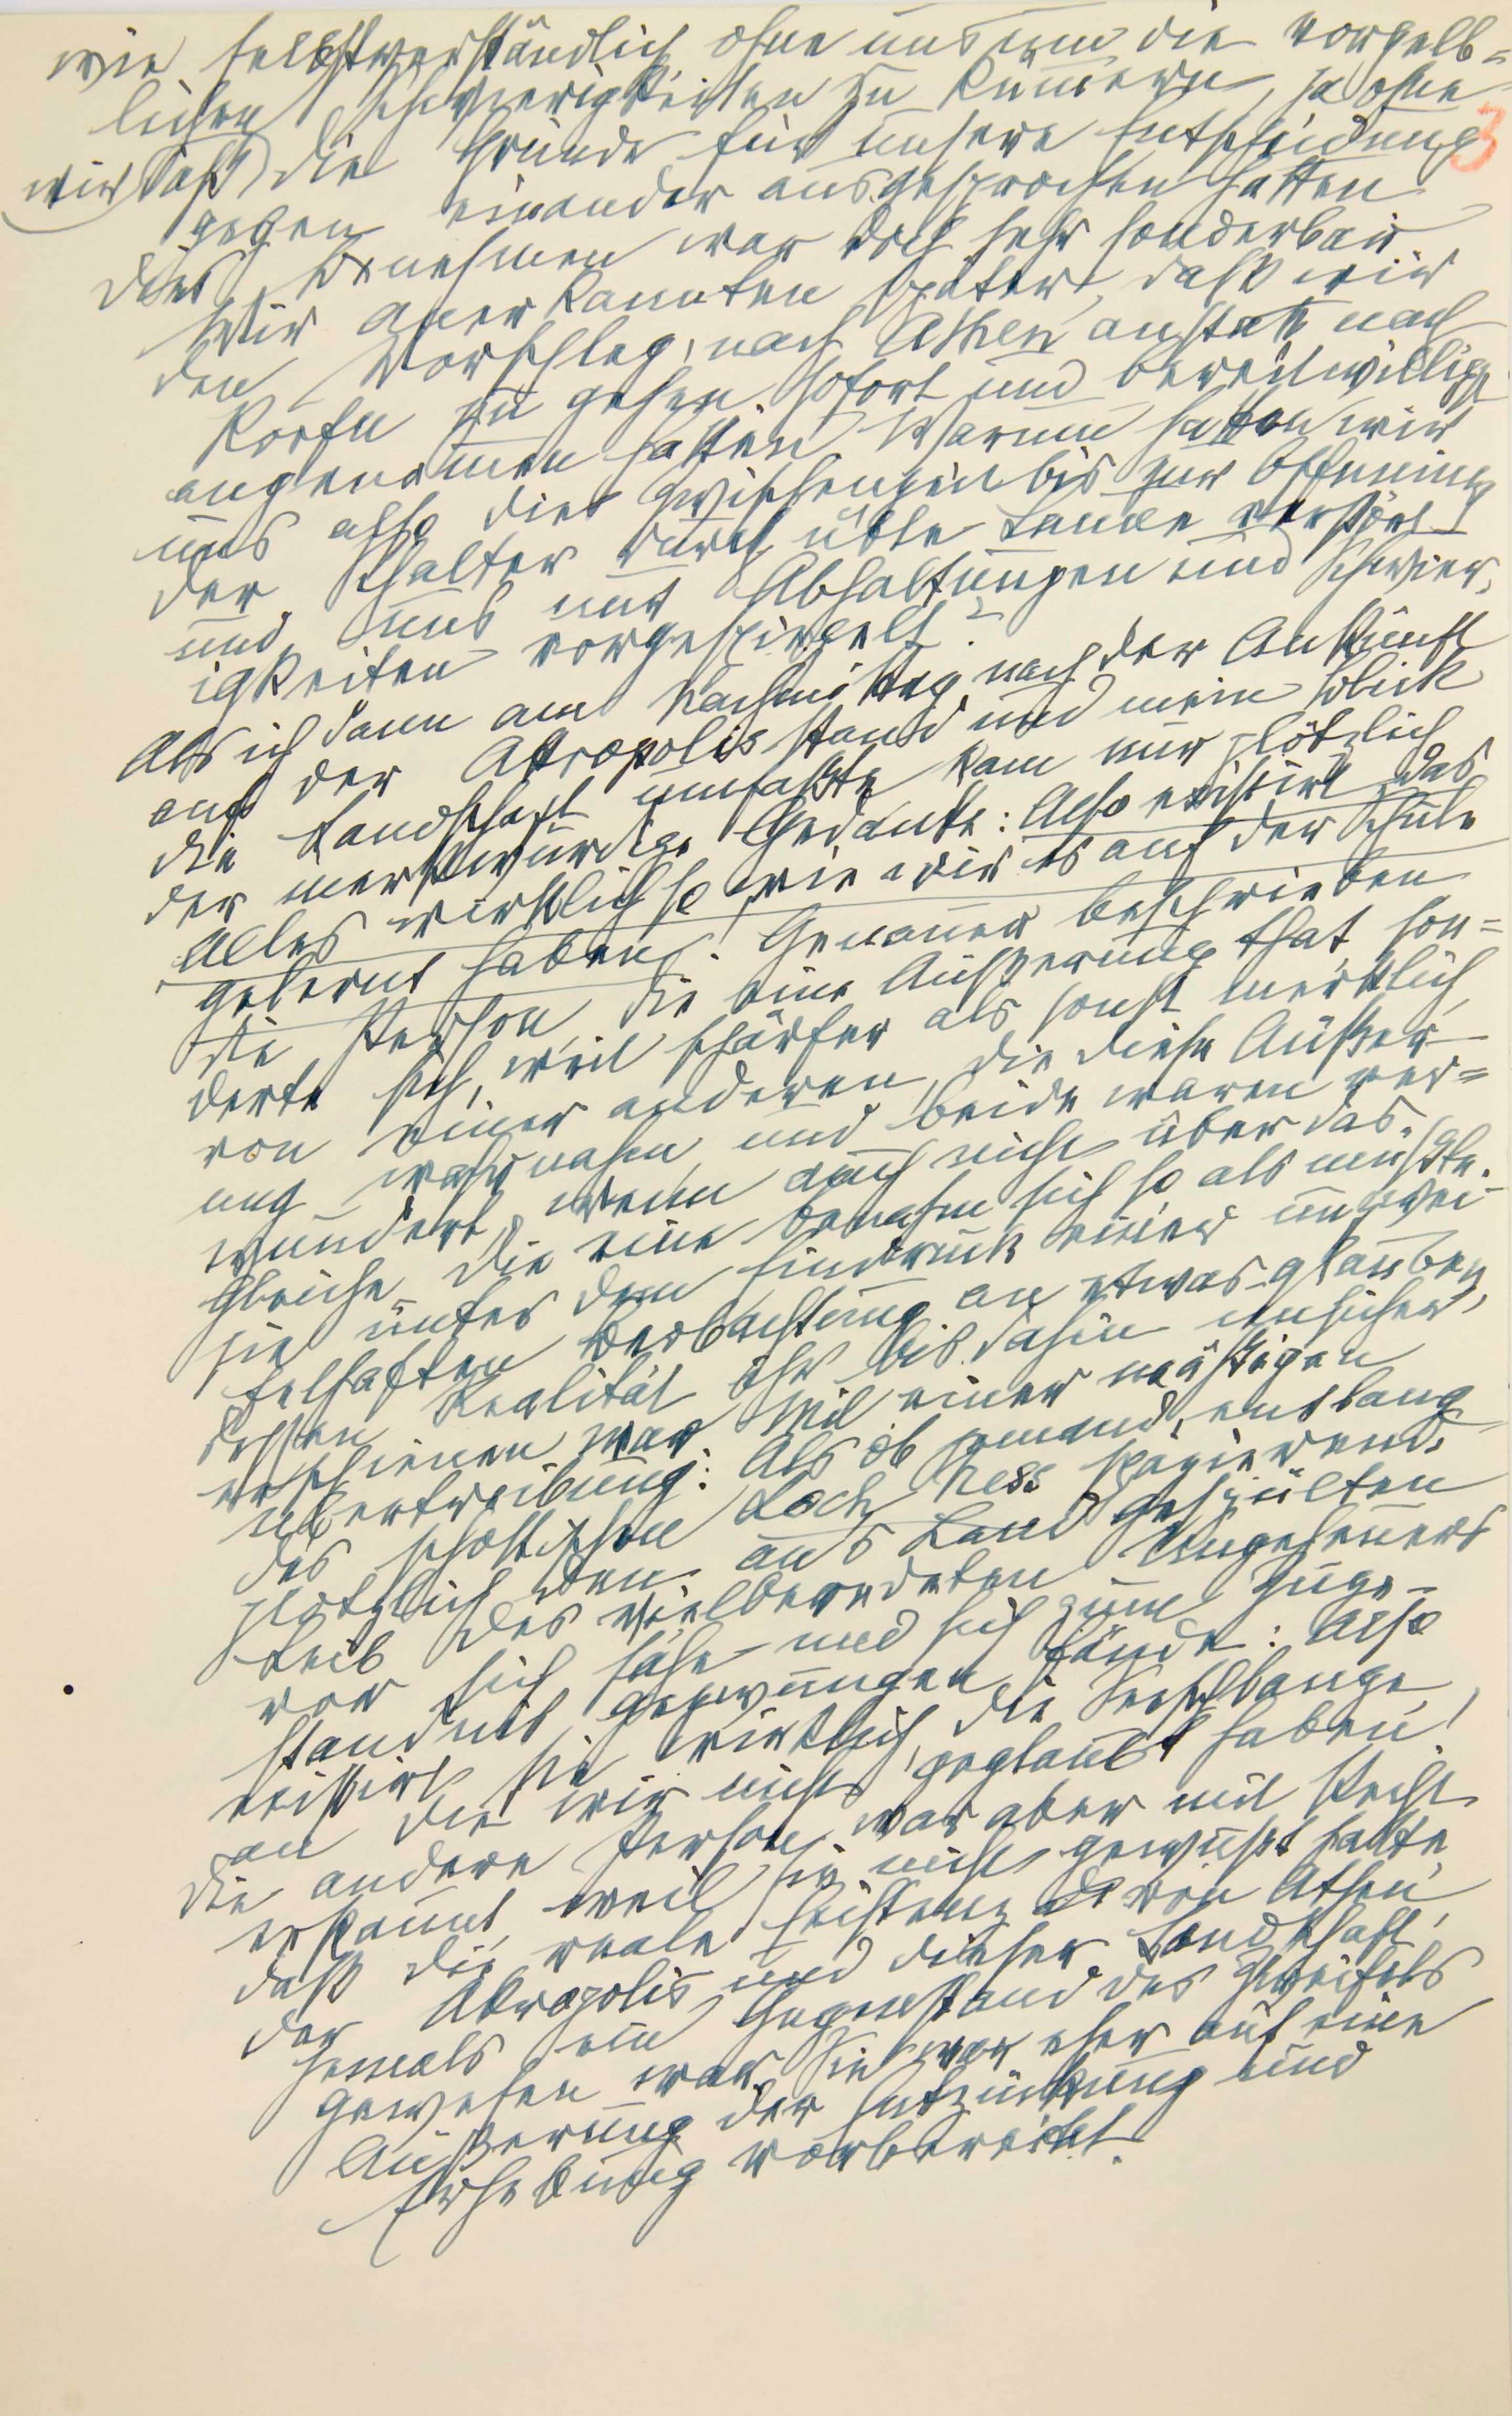 wie selbstverständlich ohne uns um die vorgeb=
lichen Schwierigkeiten zu kümmern, ja ohne
wir daß die Gründe für unsere Entscheidung
3
gegen einander ausgesprochen hatten.
Dies Benehmen war doch sehr sonderbar.
Wir anerkannten später, daß wir
den Vorschlag, nach Athen anstatt nach
Korfu zu gehen sofort und bereitwilligst
angenommen hatten. Warum hatten wir
uns also die Zwischenzeit bis zur Öffnung
der Schalter durch üble Laune verstört
und uns nur Abhaltungen und Schwier
igkeiten vorgespiegelt?
Als ich dann am Nachmittag nach der Ankunft
auf der Akropolis stand und mein Blick
die Landschaft umfaßte kam mir plötzlich
der merkwürdige Gedanke: Also existirt das
Alles wirklich so, wie wir es auf der Schule
gelernt haben! Genauer beschrieben
die Person, die eine Äußerung that, son=
derte sich, weil schärfer als sonst merklich
von einer anderen, die diese Äußer-
ung wahrnahm, und beide waren ver=
wundert, wenn auch nicht über das
Gleiche. Die eine benahm sich so als müßte
sie unter dem Eindruck einer unzwei-
felhaften Beobachtung an etwas glauben,
dessen Realität ihr bis dahin unsicher
erschienen war. Mit einer mäßigen
Übertreibung: Als ob jemand, entlang
des schottischen Loch Ness spazierend,
plötzlich den ans Land gespülten
Leib des vielberedeten Ungeheuers
vor sich sähe und sich zum Zuge-
ständnis gezwungen fände: Also
existirt sie wirklich, die Seeschlange,
an die wir nicht geglaubt haben!
Die andere Person war aber mit Recht
erstaunt, weil sie nicht gewußt hatte,
daß die reale Existenz von Athen,
der Akropolis und dieser Landschaft
jemals ein Gegenstand des Zweifels
gewesen war. Sie war eher auf eine
Äußerung der Entzückung und
Erhebung vorbereitet.